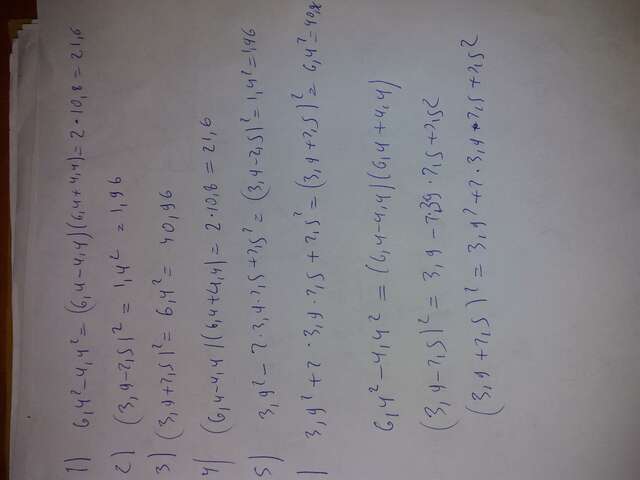 1) 6,4² - 4,4² = (6,4 - 4,4)(6,4 + 4,4) = 2 · 10,8 = 21,6
2) (3,9 - 2,5)² = 1,4² = 1,96
3) (3,9 + 2,5)² = 6,4² = 40,96
4) (6,4 - 4,4)(6,4 + 4,4) = 2 · 10,8 = 21,6
5) 3,9² - 2 · 3,9 · 2,5 + 2,5² = (3,9 - 2,5)² = 1,4² = 1,96
) 3,9² + 2 · 3,9 · 2,5 + 2,5² = (3,9 + 2,5)² = 6,4² = 40,9
6,4² - 4,4² = (6,4 - 4,4)(6,4 + 4,4)
(3,9 - 2,5)² = 3,9 - 2·39 · 2,5 + 2,5²
(3,9 + 2,5)² = 3,9² + 2 · 3,9 · 2,5 + 2,5²